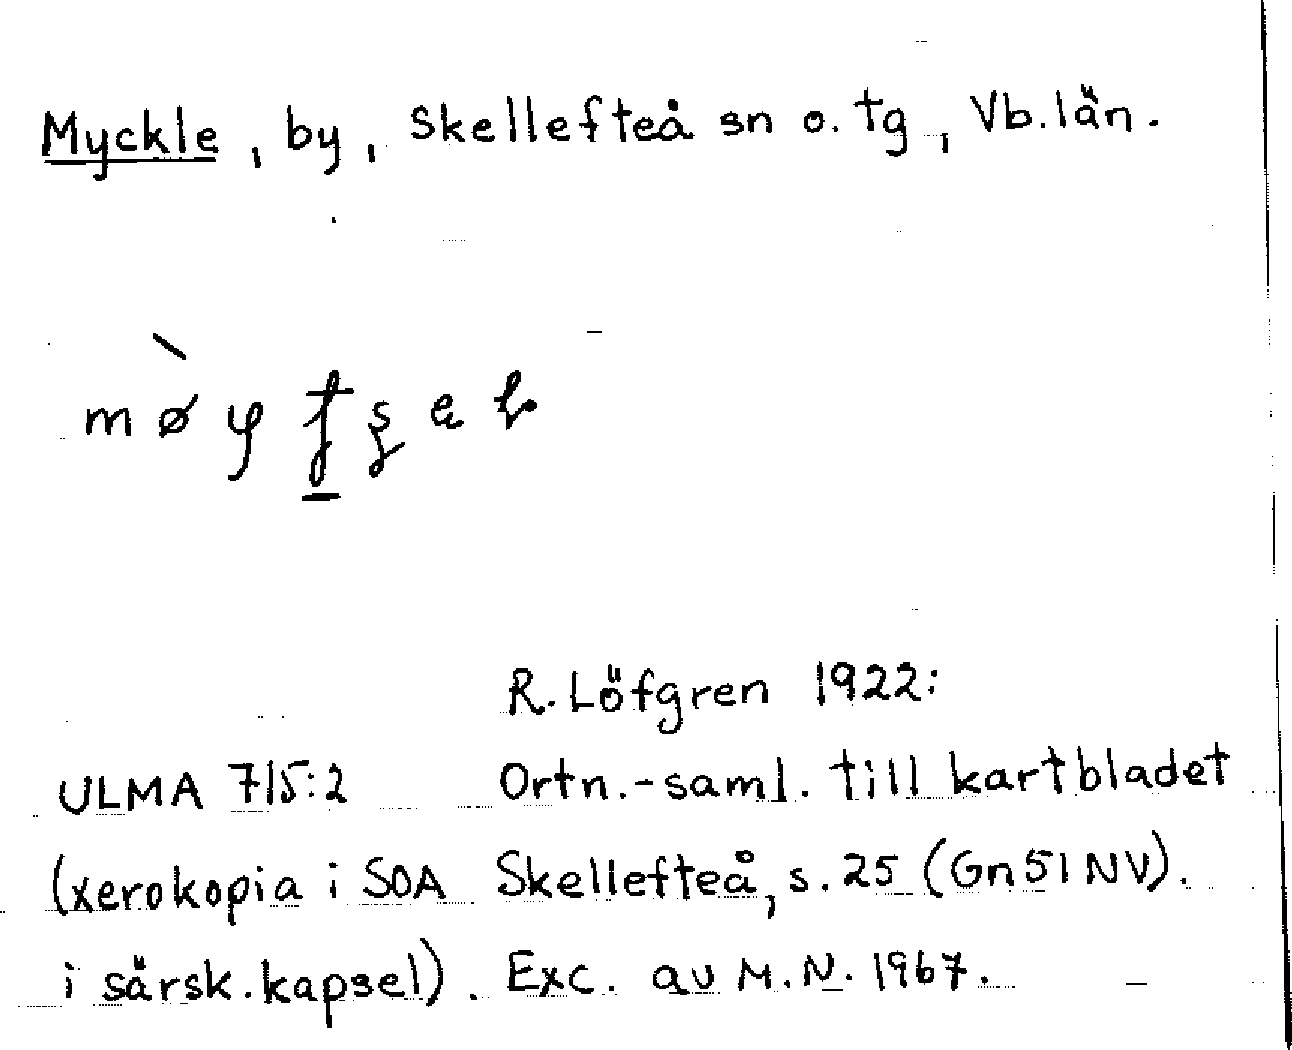 Myckle, by, Skellefteå sn o. tg, Vb.län.
R. Löfgren 1922:
ULMA 715:2 Ortn.-saml. till kartbladet
(xerokopia i SOA Skellefteå, s. 25 (Gn 51 NV).
i särsk. kapsel). Exc. av M.N. 1967.